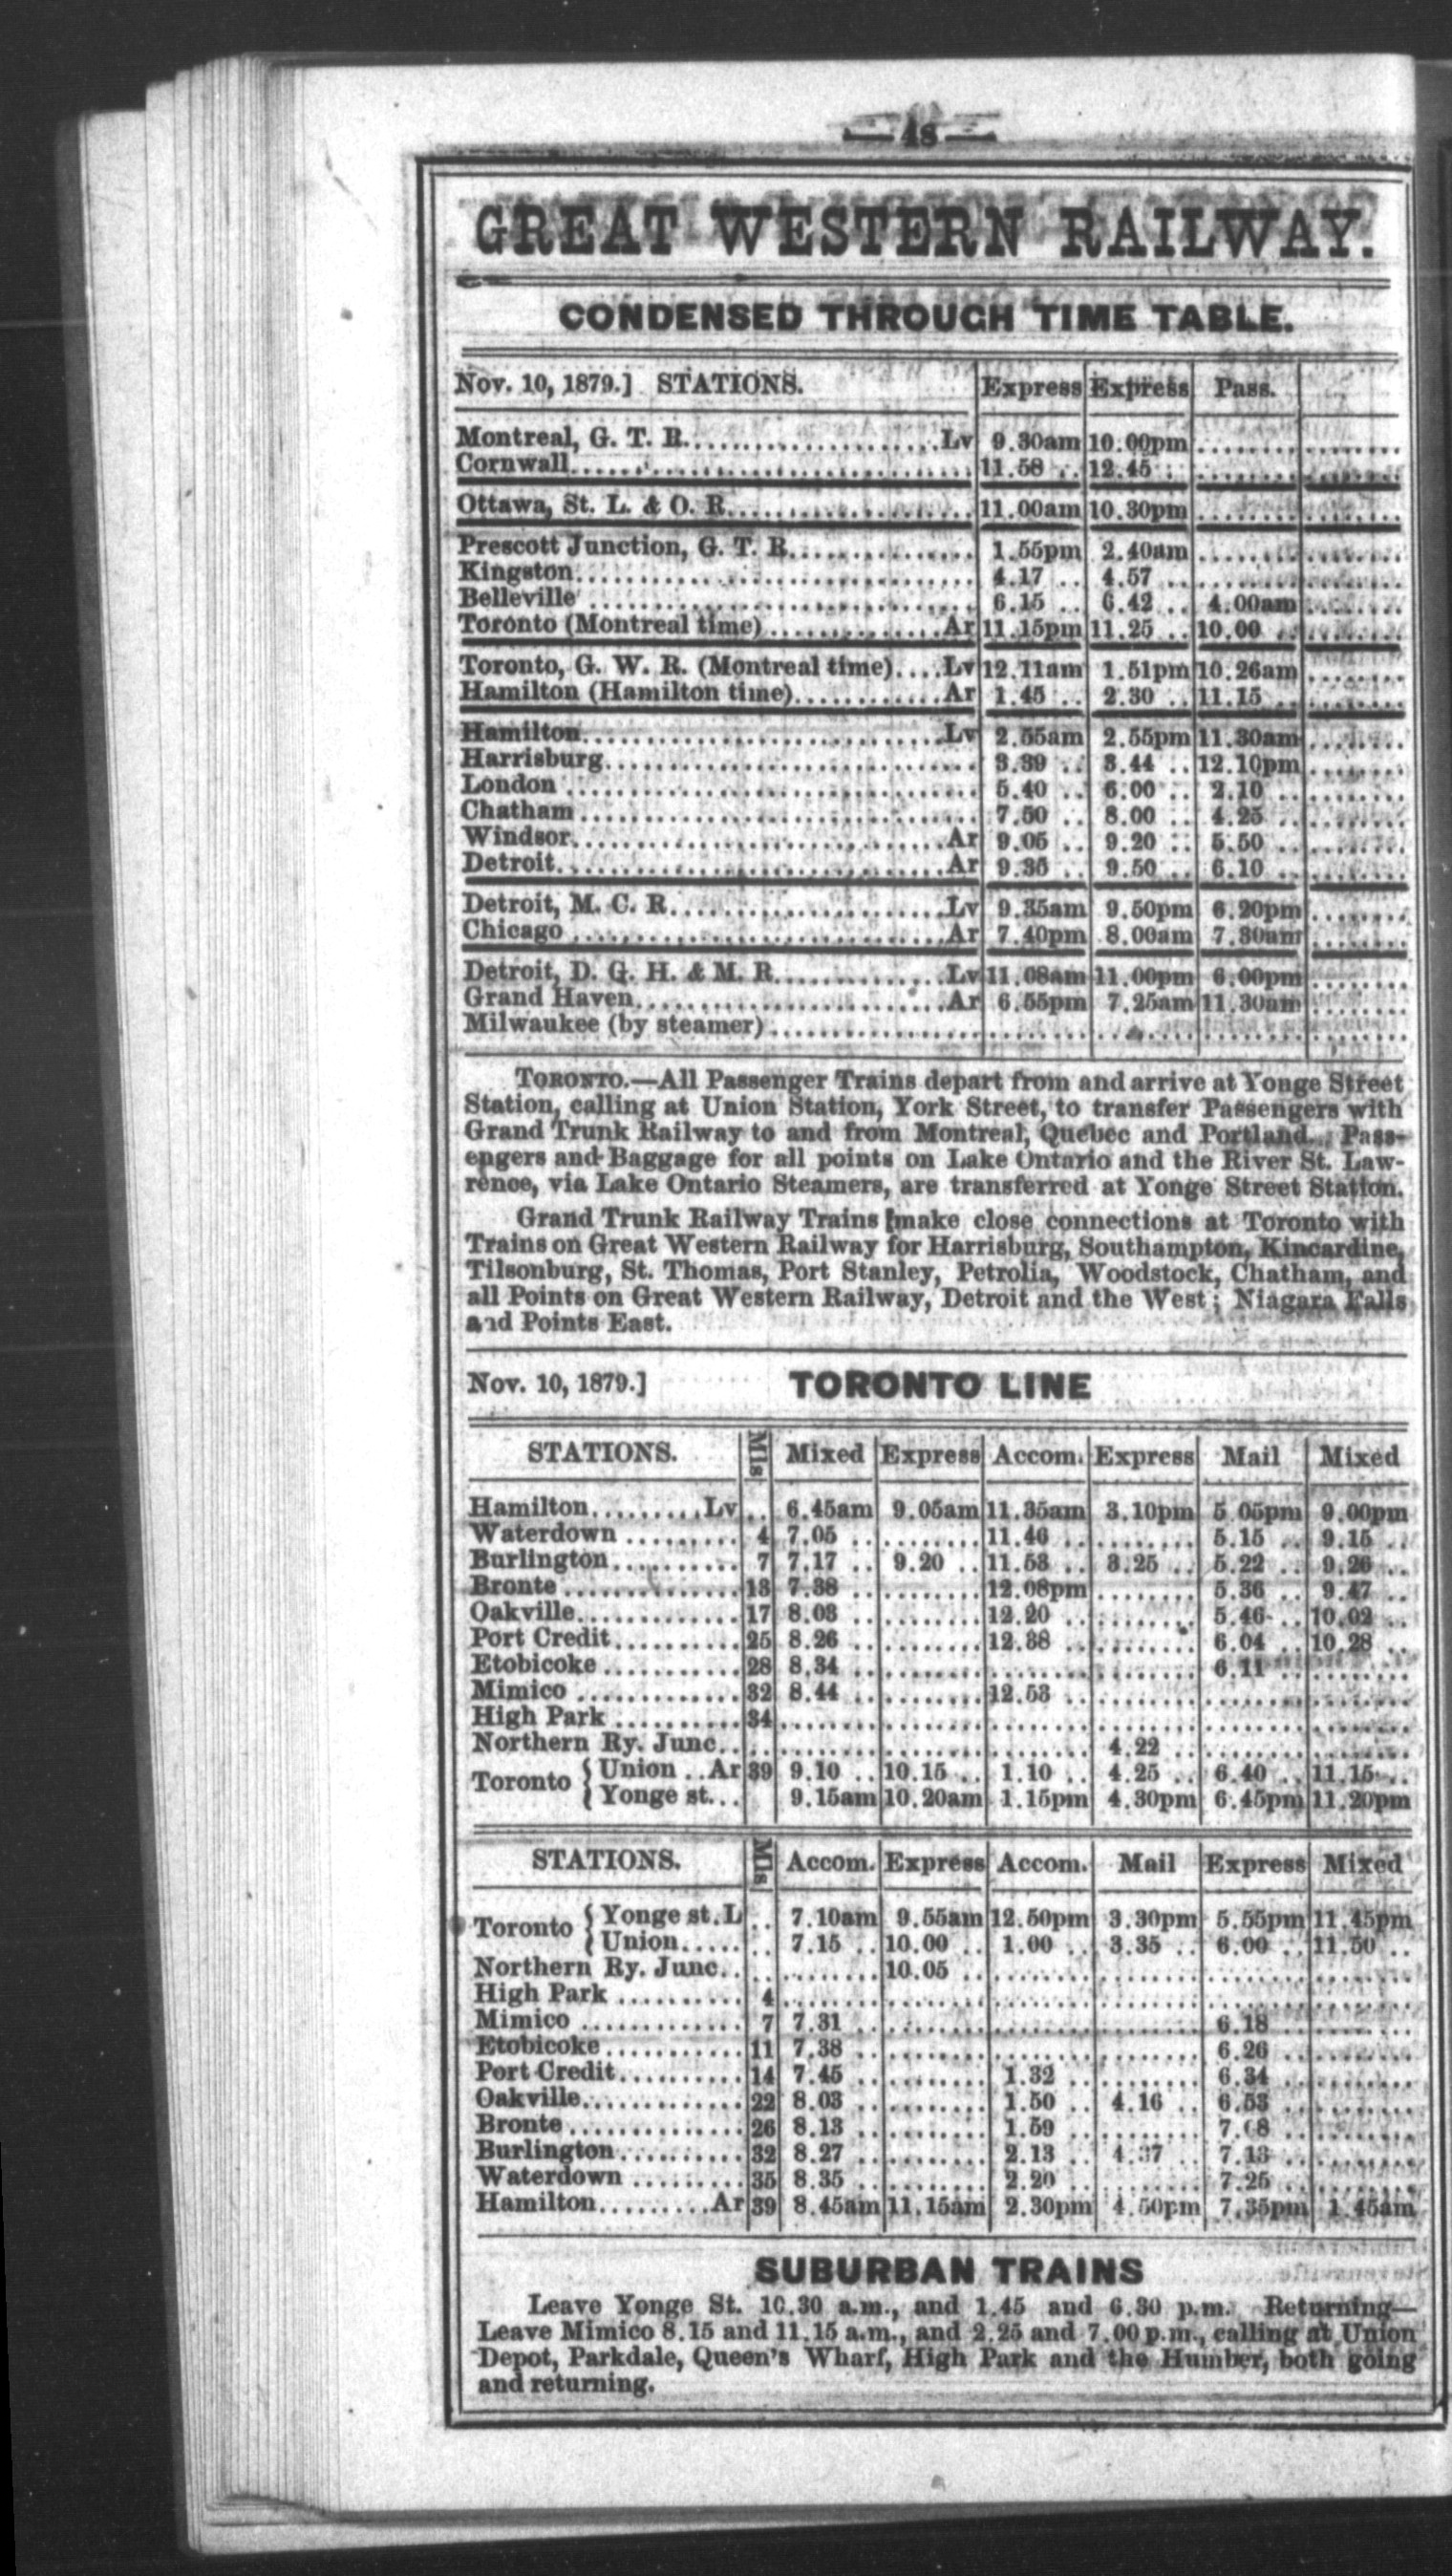 — 48 —
GREAT WESTERN RAILWAY.
CONDENSED THROUGH TIME TABLE.
Nov. 10, 1879.] STATIONS. Express Express Pass.
Montreal, G. T. R. Lv 9.30am 10.00pm
Cornwall 11.58 .. 12.45 ..
Ottawa, St. L. & O. R. 11.00am 10.30pm
Prescott Junction, G. T. R. 1.55pm 2.40am
Kingston 4.17 .. 4.57 ..
Belleville 6.15 .. 6.42 .. 4.00am
Toronto (Montreal time) Ar 11.15pm 11.25 .. 10.00 ..
Toronto, G. W. R. (Montreal time) Lv 12.11am 1.51pm 10.26am
Hamilton (Hamilton time) Ar 1.45 .. 2.30 .. 11.15 ..
Hamilton Lv 2.55am 2.55pm 11.30am
Harrisburg 3.39 .. 3.44 .. 12.10pm
London 5.40 .. 6.00 .. 2.10 ..
Chatham 7.50 .. 8.00 .. 4.25 ..
Windsor Ar 9.05 .. 9.20 .. 5.50 ..
Detroit Ar 9.35 .. 9.50 .. 6.10 ..
Detroit, M. C. R. Lv 9.35am 9.50pm 6.20pm
Chicago Ar 7.40pm 8.00am 7.30am
Detroit, D. G. H. & M. R. Lv 11.08am 11.00pm 6.00pm
Grand Haven Ar 6.55pm 7.25am 11.30am
Milwaukee (by steamer)
TORONTO.—All Passenger Trains depart from and arrive at Yonge Street
Station, calling at Union Station, York Street, to transfer Passengers with
Grand Trunk Railway to and from Montreal, Quebec and Portland. Pass-
engers and Baggage for all points on Lake Ontario and the River St. Law-
rence, via Lake Ontario Steamers, are transferred at Yonge Street Station.
Grand Trunk Railway Trains [make close connections at Toronto with
Trains on Great Western Railway for Harrisburg, Southampton, Kincardine,
Tilsonburg, St. Thomas, Port Stanley, Petrolia, Woodstock, Chatham, and
all Points on Great Western Railway, Detroit and the West; Niagara Falls
and Points East.
Nov. 10, 1879.] TORONTO LINE
STATIONS. Mls Mixed Express Accom. Express Mail Mixed
Hamilton Lv .. 6.45am 9.05am 11.35am 3.10pm 5.05pm 9.00pm
Waterdown 4 7.05 .. 11.46 .. 5.15 .. 9.15 ..
Burlington 7 7.17 .. 9.20 .. 11.53 .. 3.25 .. 5.22 .. 9.26 ..
Bronte 13 7.38 .. 12.08pm 5.36 .. 9.47 ..
Oakville 17 8.03 .. 12.20 .. 5.46 .. 10.02 ..
Port Credit 25 8.26 .. 12.38 .. 6.04 .. 10.28 ..
Etobicoke 28 8.34 .. 6.11 ..
Mimico 32 8.44 .. 12.53 ..
High Park 34
Northern Ry. Junc. 4.22 ..
Toronto { Union .. Ar 39 9.10 .. 10.15 .. 1.10 .. 4.25 .. 6.40 .. 11.15 ..
{ Yonge st. 9.15am 10.20am 1.15pm 4.30pm 6.45pm 11.20pm
STATIONS. Mls Accom. Express Accom. Mail Express Mixed
Toronto { Yonge st. L .. 7.10am 9.55am 12.50pm 3.30pm 5.55pm 11.45pm
{ Union .. 7.15 .. 10.00 .. 1.00 .. 3.35 .. 6.00 .. 11.50 ..
Northern Ry. Junc. 10.05 ..
High Park 4
Mimico 7 7.31 .. 6.18 ..
Etobicoke 11 7.38 .. 6.26 ..
Port Credit 14 7.45 .. 1.32 .. 6.34 ..
Oakville 22 8.03 .. 1.50 .. 4.16 .. 6.53 ..
Bronte 26 8.13 .. 1.59 ..
Burlington 32 8.27 .. 2.13 .. 4.37 .. 7.13 ..
Waterdown 35 8.35 .. 2.20 .. 7.25 ..
Hamilton Ar 39 8.45am 11.15am 2.30pm 4.50pm 7.35pm 1.45am
SUBURBAN TRAINS
Leave Yonge St. 10.30 a.m., and 1.45 and 6.30 p.m. Returning—
Leave Mimico 8.15 and 11.15 a.m., and 2.25 and 7.00 p.m., calling at Union
Depot, Parkdale, Queen's Wharf, High Park and the Humber, both going
and returning.